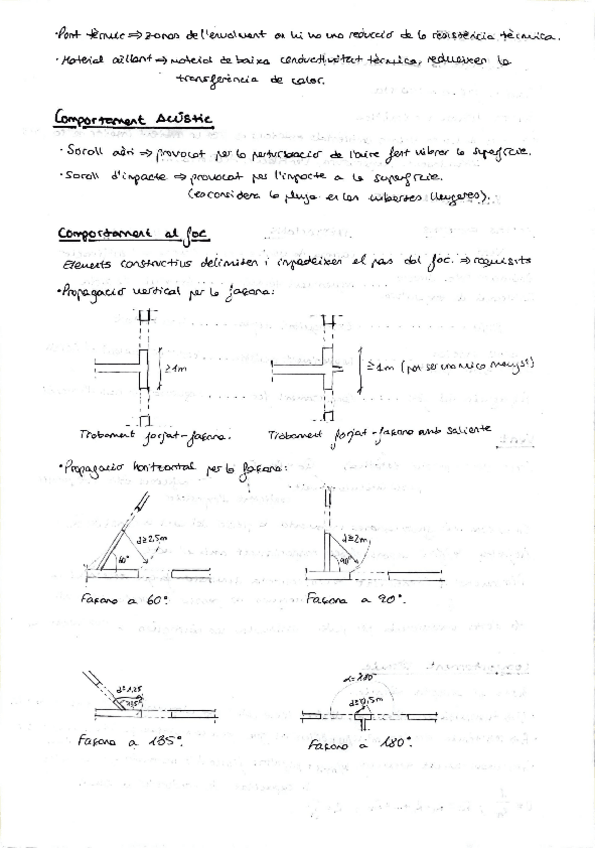 · Pont tèrmic ⇒ zones de l'envolvent on hi ha una reducció de la resistència tèrmica.
· Material aïllant → material de baixa conductivitat tèrmica, redueixen la
transferència de calor.
Comportament Acústic
· Soroll aeri ⇒ provocat per la perturbació de l'aire fent vibrar la superfície.
· Soroll d'impacte ⇒ provocat per l'impacte a la superfície.
(es considera la pluja en les cobertes lleugeres).
Comportament al foc
Elements constructius delimiten i impedeixen el pas del foc. ⇒ requisits
· Propagació vertical per la façana:
≥1m
≥1m (pot ser una mica menys)
Trobament forjat-façana.
Trobament forjat-façana amb saliente
· Propagació horitzontal per la façana:
d≥2,5m
60°
d≥2m
90°
Façana a 60°.
Façana a 90°.
d=1,25
135°
d≥0,5m
Façana a 135°.
Façana a 180°.